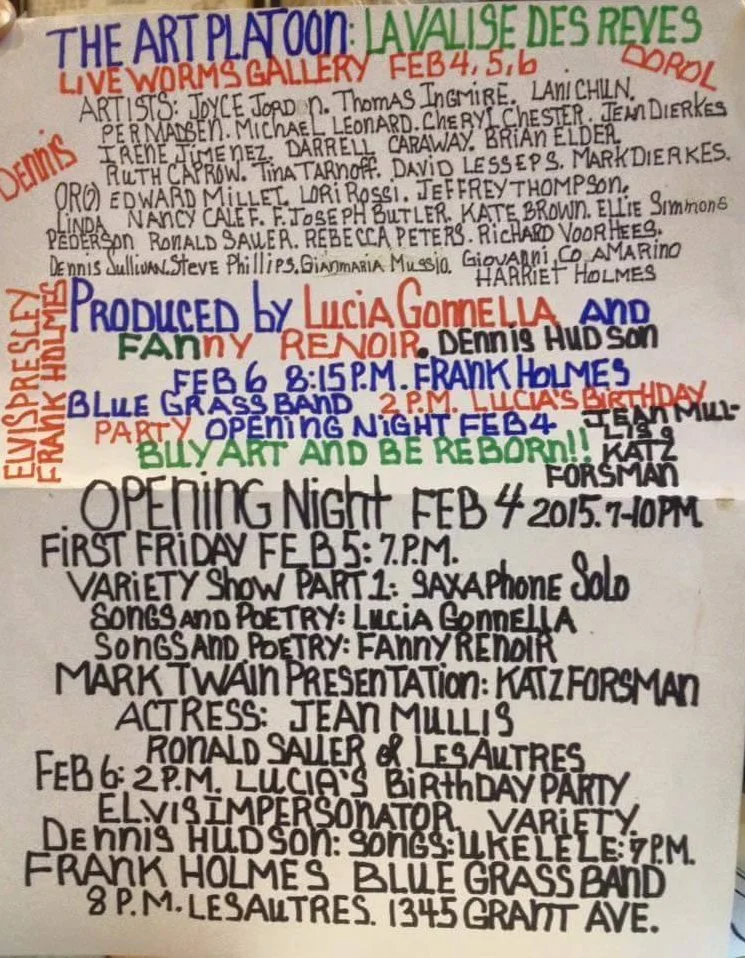 THE ART PLATOON: LA VALISE DES REVES
LIVE WORMS GALLERY FEB 4, 5, 6 DOROL
ARTISTS: JOYCE JORDON. THOMAS INGMIRE. LANI CHUN.
PER MADSEN. MICHAEL LEONARD. CHERYL CHESTER. JEAN DIERKES
DENNIS
IRENE JIMENEZ. DARRELL CARAWAY. BRIAN ELDER
RUTH CAPROW. TINA TARNOFF. DAVID LESSEPS. MARK DIERKES.
EDWARD MILLET. LORI ROSSI. JEFFREY THOMPSON.
LINDA NANCY CALEF. F. JOSEPH BUTLER. KATE BROWN. ELLIE SIMMONS
PEDERSON RONALD SAUER. REBECCA PETERS. RICHARD VOORHEES.
DENNIS SULLIVAN. STEVE PHILLIPS. GIANMARIA MUSSIO. GIOVANNI CO AMARINO
HARRIET HOLMES
ELVIS PRESLEY
FRANK HOLMES
PRODUCED by LUCIA GONNELLA AND
FANNY RENOIR. DENNIS HUDSON
FEB 6 8:15 P.M. FRANK HOLMES
BLUE GRASS BAND 2 P.M. LUCIA'S BIRTHDAY
PARTY OPENING NIGHT FEB 4 JEAN MULL-
IS
BUY ART AND BE REBORN!! KATZ
FORSMAN
OPENING NIGHT FEB 4 2015. 7-10 PM
FIRST FRIDAY FEB 5: 7 P.M.
VARIETY SHOW PART 1: SAXAPHONE SOLO
SONGS AND POETRY: LUCIA GONNELLA
SONGS AND POETRY: FANNY RENOIR
MARK TWAIN PRESENTATION: KATZ FORSMAN
ACTRESS: JEAN MULLIS
RONALD SAUER of LES AUTRES
FEB 6: 2 P.M. LUCIA'S BIRTHDAY PARTY
ELVIS IMPERSONATOR VARIETY
DENNIS HUDSON: SONGS: UKELELE: 7 P.M.
FRANK HOLMES BLUE GRASS BAND
8 P.M. LES AUTRES. 1345 GRANT AVE.